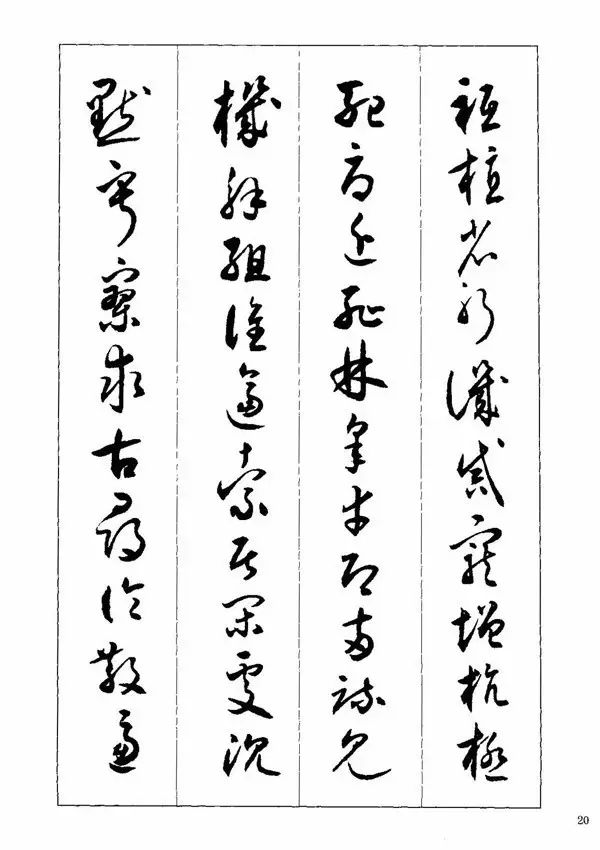 祗植省躬譏誡寵增抗極
殆辱近恥林皋幸即兩疏見
機解組誰逼索居閑處沉
默寂寥求古尋論散慮
20